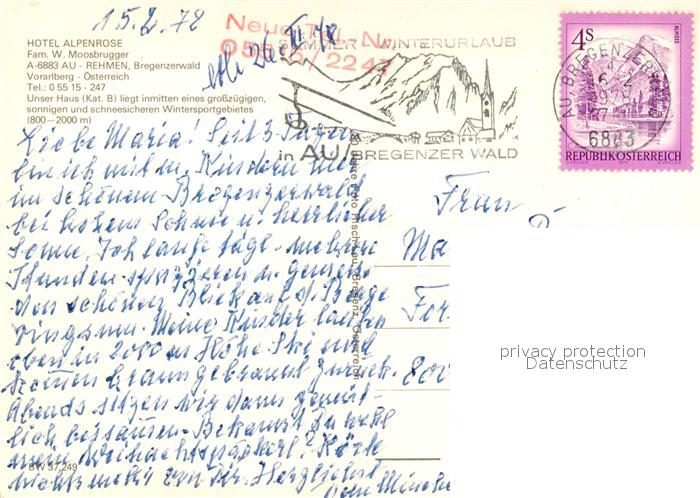 15.2.78
HOTEL ALPENROSE
Fam. W. Moosbrugger
A-6883 AU - REHMEN, Bregenzerwald
Vorarlberg - Österreich
Tel.: 0 55 15 - 247
Unser Haus (Kat. B) liegt inmitten eines großzügigen,
sonnigen und schneesicheren Wintersportgebietes
(800—2000 m)
Neue Tel.-Nr.
05515/2247
SOMMER WINTERURLAUB
in AU/BREGENZER WALD
4S
ALMSEE
AU, BREGENZERWALD
6883
REPUBLIK ÖSTERREICH
Liebe Maria! Seit 3 Tagen
bin ich mit m. Kindern hier
im schönen Bregenzerwald
bei hohem Schnee u. herrlicher
Sonne. Ich laufe tägl. mehrere
Stunden spazieren u. geniesse
den schönen Blick auf d. Berge
ringsum. Meine Kinder laufen
oben in 2000 m Höhe Ski und
kommen braungebrannt zurück.
Abends sitzen wir dann gemüt-
lich beisammen. Bekamst Du wohl
meine Weihnachtspost? Hörte
nichts mehr von Dir. Herzlichst
Frau
Ma
For
privacy protection
Datenschutz
BW 37 249